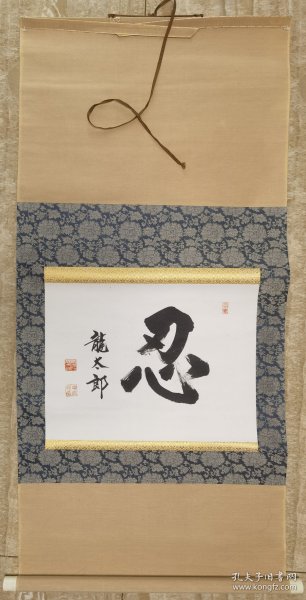 忍
龍太郎
孔夫子旧书网
www.kongfz.com